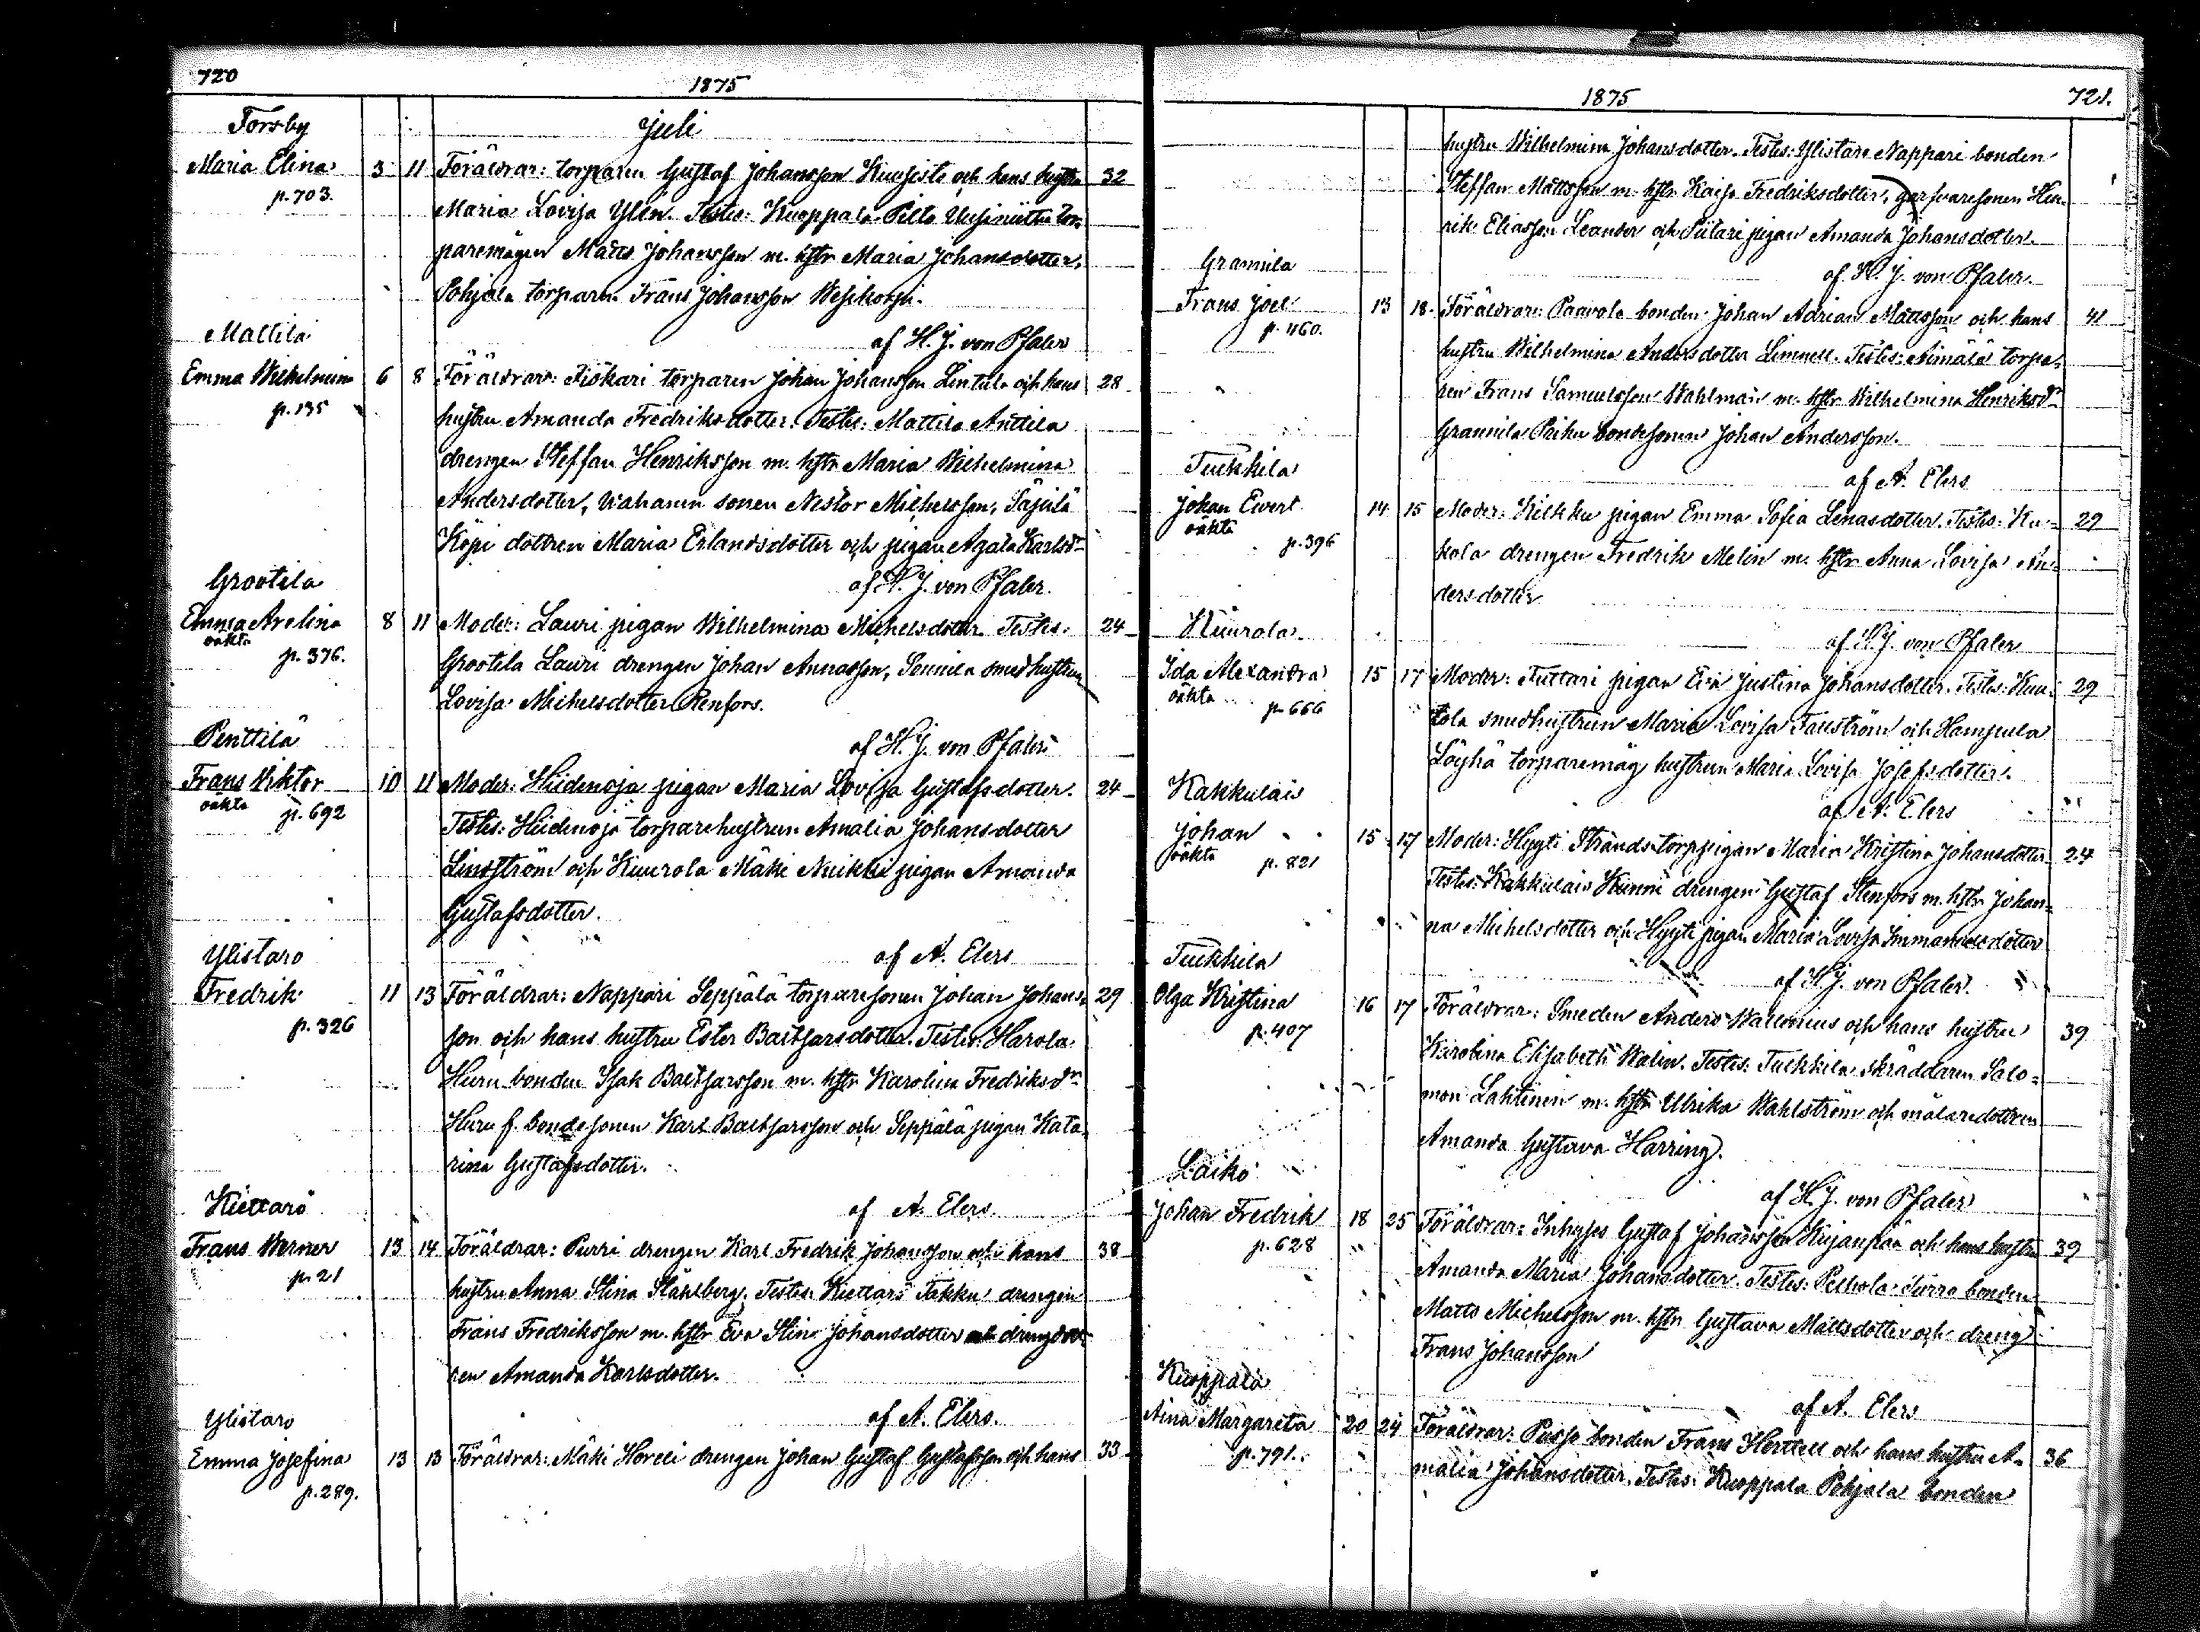 720
1875
Forsby
Juli
Maria Elina 3 11 Föräldrar: torparen Gustaf Johansson Kuusisto och hans hustru 32
p. 703. Maria Lovisa Ylén. Testes: Kuoppala Pelto Uusiniittu tor-
paremågen Matts Johansson m. hstr Maria Johansdotter,
Pohjala torparen Frans Johansson Wesikorpi.
Mattila
af H. J. von Pfaler
Emma Wilhelmina 6 8 Föräldrar: Fiskari torparen Johan Johansson Lintula och hans 28
p. 135 hustru Amanda Fredriksdotter. Testes: Mattila Anttila
drengen Steffan Henriksson m. hstr Maria Wilhelmina
Andersdotter, Wahanen sonen Nestor Michelsson, Säpilä
Köpi dottren Maria Erlandsdotter och pigan Agata Karlsdr
Grootila
af H. J. von Pfaler.
Emma Avelina 8 11 Moder: Lauri pigan Wilhelmina Michelsdotter. Testes: 24
oäkta
p. 376. Grootila Lauri drengen Johan Annasson, Sonnila smedhustrun
Lovisa Michelsdotter Renfors.
Penttilä
af H. J. von Pfaler
Frans Viktor 10 11 Moder: Hiidenoja pigan Maria Lovisa Gustafsdotter. 24
oäkta p. 692
Testes: Hiidenoja torparehustrun Amalia Johansdotter
Lindström och Kiurola Mäki Nuikki pigan Amanda
Gustafsdotter.
Ylistaro
af A. Elers
Fredrik 11 13 Föräldrar: Nappari Seppälä torparesonen Johan Johans- 29
p. 326 son och hans hustru Ester Baltsarsdotter. Testes: Harola
Huru bonden Isak Baltsarsson m. hstr Karolina Fredriksdr
Huru f. bondesonen Karl Baltsarsson och Seppälä pigan Kata-
rina Gustafsdotter.
Kiettarö
af A. Elers.
Frans Werner 13 14 Föräldrar: Purri drengen Karl Fredrik Johansson och hans 38
p. 21 hustru Anna Stina Ståhlberg. Testes: Kiettarö Takku drengen
Frans Fredriksson m. hstr Eva Stina Johansdotter och drengdott-
ren Amanda Karlsdotter.
Ylistaro
af A. Elers.
Emma Josefina 13 13 Föräldrar: Mäki Horeli drengen Johan Gustaf Gustafsson och hans 33
p. 289.
1875
721.
hustru Wilhelmina Johansdotter. Testes: Ylistaro Nappari bonden
Steffan Mattsson m. hstr Kaisa Fredriksdotter, garfvaresonen Hen-
rik Eliasson Leander och Piilari pigan Amanda Johansdotter.
Grannila
af H. J. von Pfaler.
Frans Joel 13 18. Föräldrar: Paavola bonden Johan Adrian Mattsson och hans 41
p. 460. hustru Wilhelmina Andersdotter Limnell. Testes: Äimälä torpa-
ren Frans Samuelsson Wahlman m. hstr Wilhelmina Henriksdr
Grannila Priku bondesonen Johan Andersson.
Tuckkila
af A. Elers
Johan Evert 14 15 Moder: Kilkku pigan Emma Sofia Lenasdotter. Testes: Ku- 29
oäkta
p. 396 kola drengen Fredrik Melin m. hstr Anna Lovisa An-
dersdotter
Kiurola
af H. J. von Pfaler
Ida Alexandra 15 17 Moder: Tuttari pigan Eva Justina Johansdotter. Testes: Kuu- 29
oäkta p. 666
tola smedhustrun Maria Lovisa Tallström och Hampula
Löyhä torparemåg hustrun Maria Lovisa Josefsdotter.
Kakkulais
af A. Elers
Johan 15 17 Moder: Hyyti Strandstorp pigan Maria Kristina Johansdotter 24
oäkta p. 821
Testes: Kakkulais Kunni drengen Gustaf Stenfors m. hstr Johan-
na Michelsdotter och Hyyti pigan Maria Lovisa Immanuelsdotter
Tuckkila
af H. J. von Pfaler.
Olga Kristina 16 17 Föräldrar: Smeden Anders Wallenius och hans hustru 39
p. 407 Karolina Elisabeth Walin. Testes: Tuckkila Skräddaren Salo-
mon Lahtinen m. hstr Ulrika Wahlström och målaredottren
Amanda Gustava Harring.
Laiko
af H. J. von Pfaler
Johan Fredrik 18 25 Föräldrar: Inhyses Gustaf Johansson Kujanpää och hans hustru 39
p. 628 Amanda Maria Johansdotter. Testes: Peltola Turra bonden
Matts Michelsson m. hstr Gustava Mattsdotter och dreng
Frans Johansson
Kuoppala
af A. Elers
Aina Margareta 20 24 Föräldrar: Pusso bonden Frans Herttell och hans hustru A- 36
p. 791. malia Johansdotter. Testes: Kuoppala Pohjala bonden